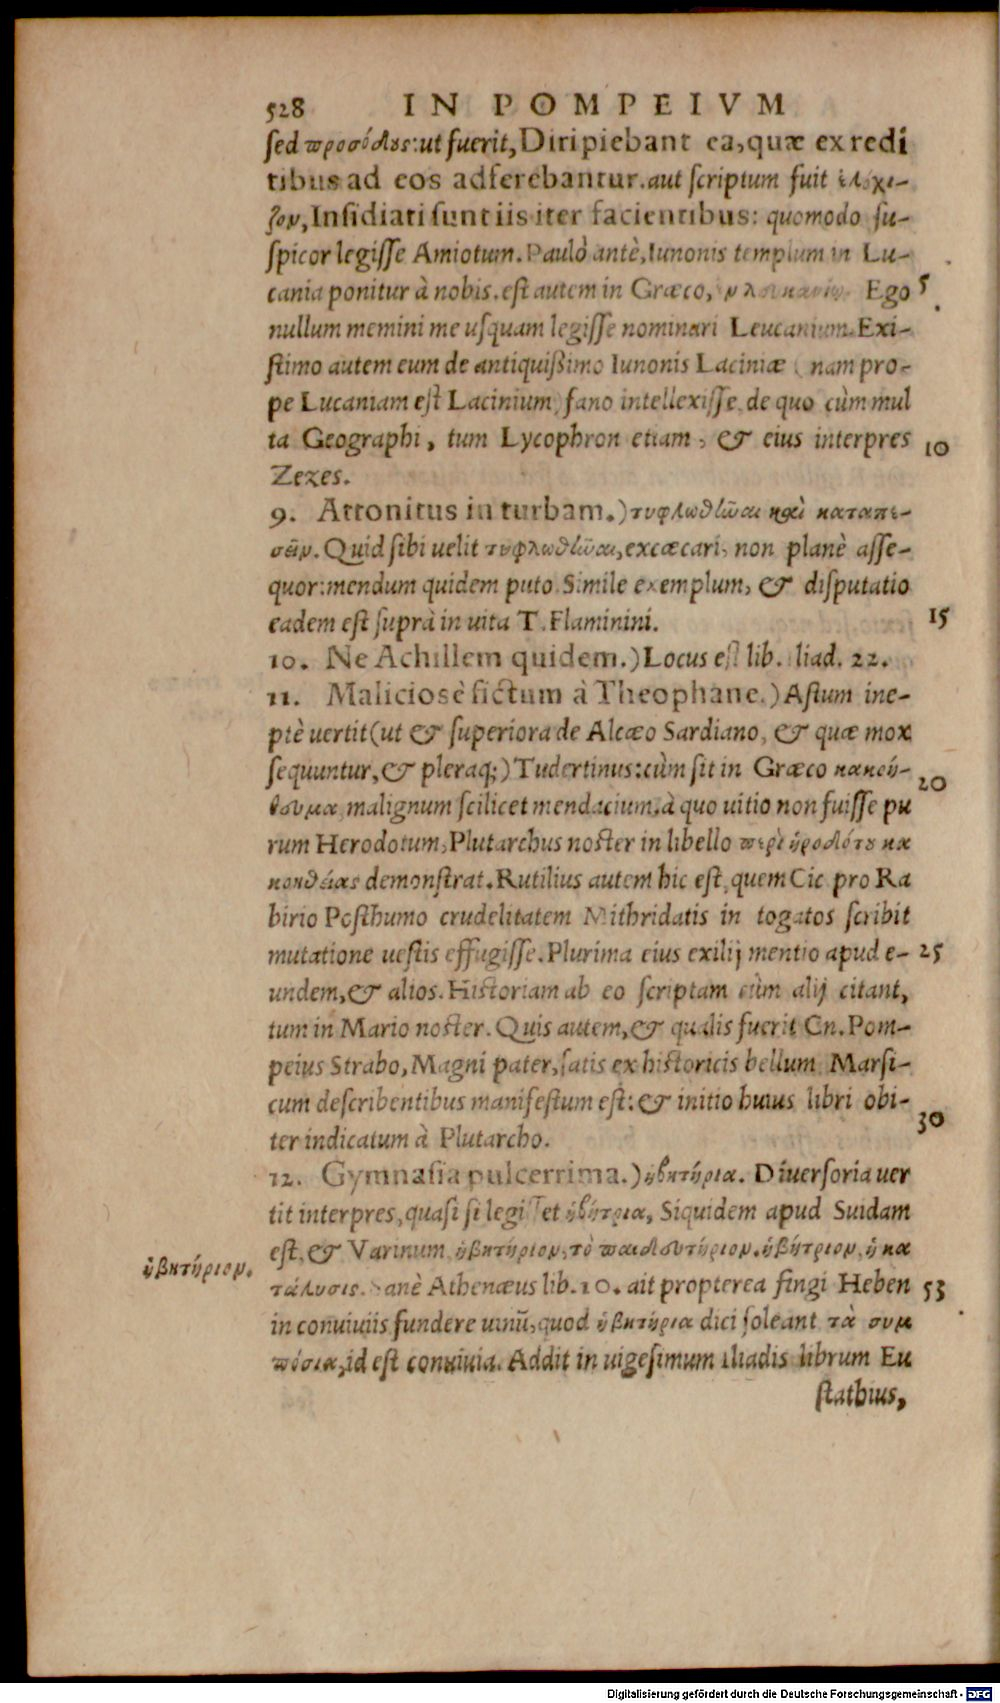 528 IN POMPEIVM
sed προσόδους: ut fuerit, Diripiebant ea, quæ ex redi
tibus ad eos adferebantur. aut scriptum fuit ἐλόχι-
ζον, Insidiati sunt iis iter facientibus: quomodo su-
spicor legisse Amiotum. Paulò antè, Iunonis templum in Lu-
cania ponitur à nobis. est autem in Græco, Ego 5
nullum memini me usquam legisse nominari Leucanium. Exi-
stimo autem eum de antiquißimo Iunonis Laciniæ (nam pro-
pe Lucaniam est Lacinium) fano intellexisse. de quo cùm mul
ta Geographi, tum Lycophron etiam, & eius interpres 10
Zezes.
9. Attonitus in turbam.) τυφλωθῆναι καὶ καταπε-
σεῖν. Quid sibi uelit τυφλωθῆναι, excæcari, non planè asse-
quor: mendum quidem puto. Simile exemplum, & disputatio
eadem est suprà in uita T. Flaminini. 15
10. Ne Achillem quidem.) Locus est lib. Iliad. 22.
11. Maliciosè fictum à Theophane.) Astum ine-
ptè uertit (ut & superiora de Alcæo Sardiano, & quæ mox
sequuntur, & pleraq;) Tudertinus: cùm sit in Græco κακοή-
θευμα, malignum scilicet mendacium. à quo uitio non fuisse pu 20
rum Herodotum, Plutarchus noster in libello περὶ ἡροδότου κα
κοηθείας demonstrat. Rutilius autem hic est, quem Cic pro Ra
birio Posthumo crudelitatem Mithridatis in togatos scribit
mutatione uestis effugisse. Plurima eius exilij mentio apud e- 25
undem, & alios. Historiam ab eo scriptam cùm alij citant,
tum in Mario noster. Quis autem, & qualis fuerit Cn. Pom-
peius Strabo, Magni pater, satis ex historicis bellum Marsi-
cum describentibus manifestum est: & initio huius libri obi-
ter indicatum à Plutarcho. 30
12. Gymnasia pulcerrima.) ἡβητήρια. Diuersoria uer
tit interpres, quasi si legisset ἡβήτρια, Siquidem apud Suidam
est, & Varinum, ἡβητήριον, τὸ παιδευτήριον. ἡβήτριον, ἡ κα
ἡβητήριον.
τάλυσις. Sanè Athenæus lib. 10. ait propterea fingi Heben 53
in conuiuiis fundere uinũ, quod ἡβητήρια dici soleant τὰ συμ
πόσια, id est conuiuia. Addit in uigesimum Iliadis librum Eu
stathius,
Digitalisierung gefördert durch die Deutsche Forschungsgemeinschaft - DFG